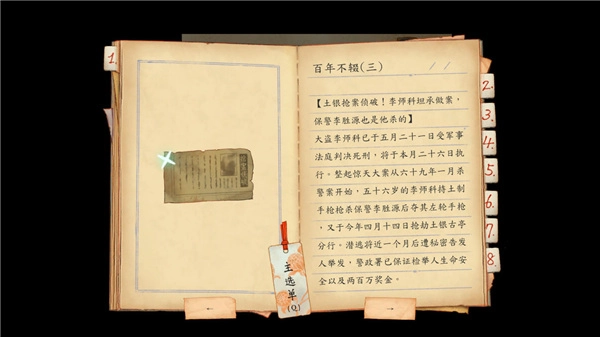 1.
百年不辍(三)
【土银抢案侦破！李师科坦承做案，
保警李胜源也是他杀的】
大盗李师科已于五月二十一日受军事
法庭判决死刑，将于本月二十六日执
行。整起惊天大案从六十九年一月杀
警案开始，五十六岁的李师科持土制
手枪枪杀保警李胜源后夺其左轮手枪
，又于今年四月十四日抢劫土银古亭
分行。潜逃将近一个月后遭秘密告发
人举发，警政署已保证检举人生命安
全以及两百万奖金。
主选单
(Q)
2.
3.
4.
5.
6.
7.
8.
←
→